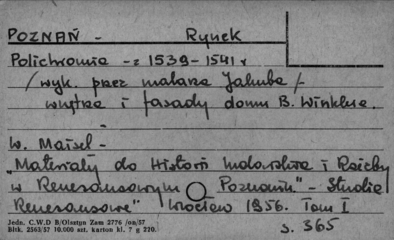 POZNAŃ - Rynek
Polichromia - z 1539-1541 r
/ wyk. przez malarza Jakuba /
wnętrza i fasady domu B. Winklera.
W. Maisel -
"Materiały do Historii malarstwa i Rzeźby
w Renesansowym Poznaniu" - Studia
Renesansowe" Wrocław 1956. Tom I
s. 365
Jedn. C.W.D B/Olsztyn Zam 2776 /on/57
Bltk. 2563/57 10.000 szt. karton kl. 7 g 220.